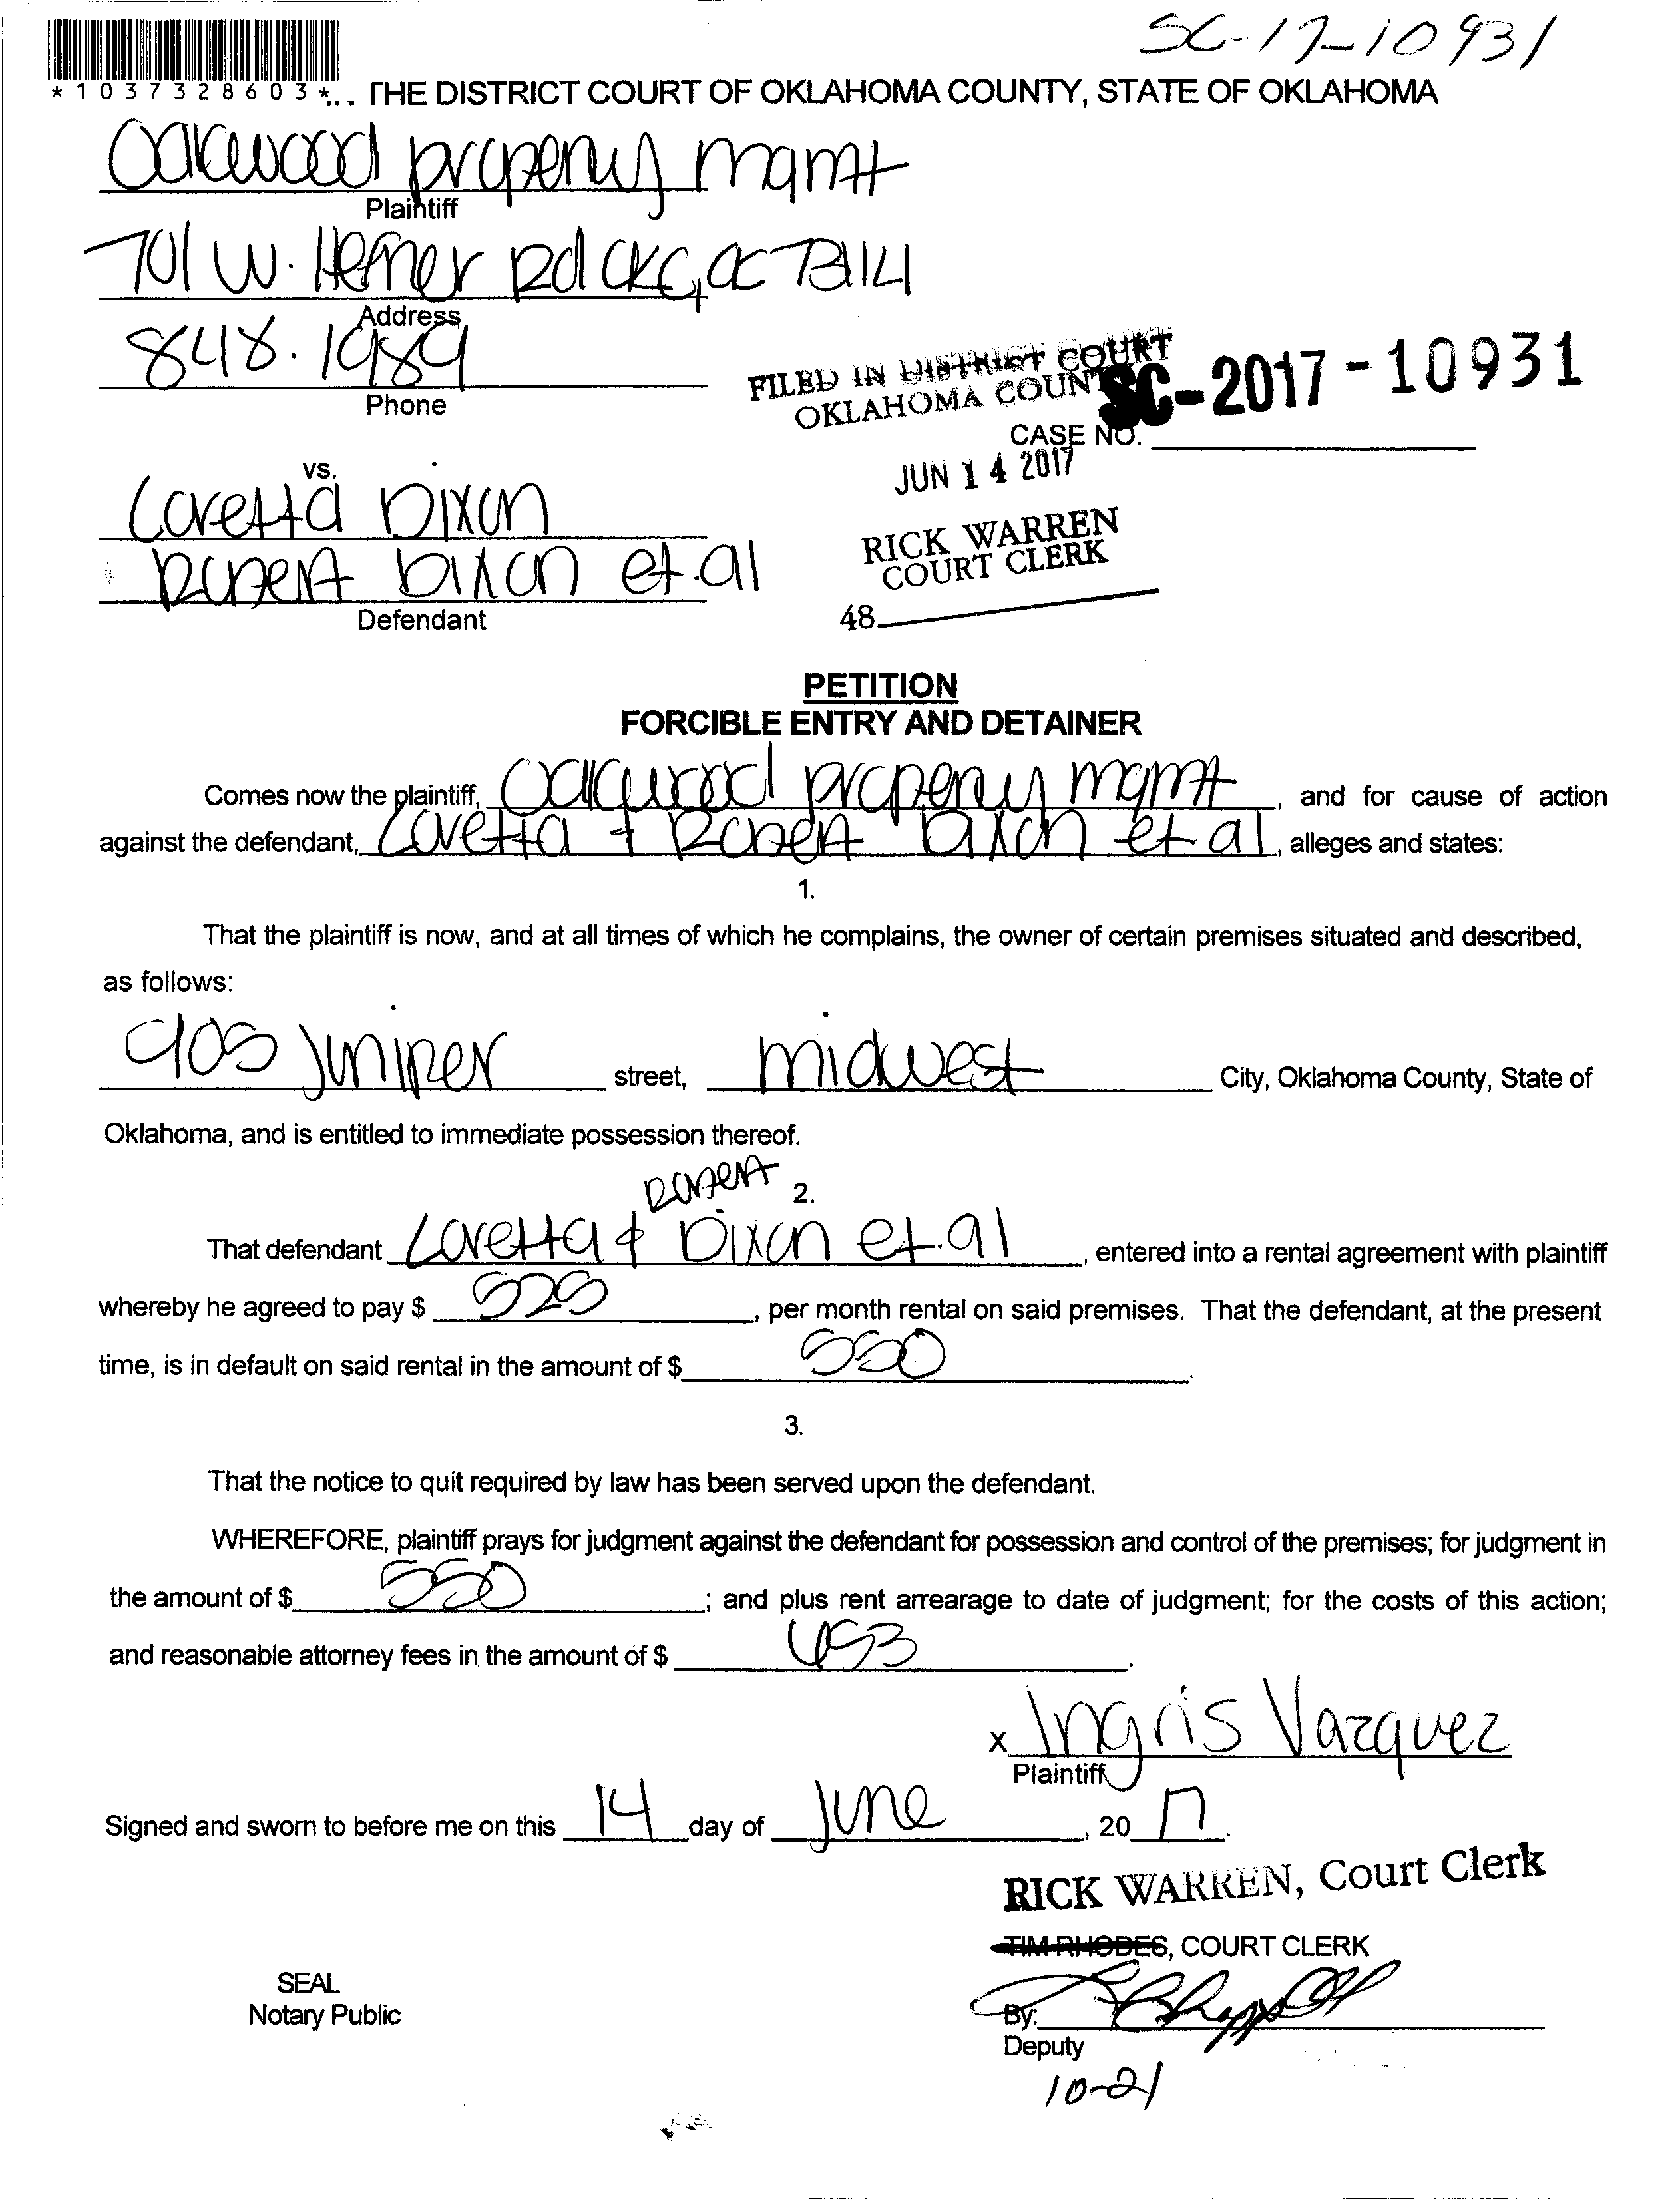 SC-17-10931
*1037328603*... THE DISTRICT COURT OF OKLAHOMA COUNTY, STATE OF OKLAHOMA
Oakwood property mgmt
Plaintiff
701 W. Hefner Rd OKC, OK 73114
Address
848.1989
Phone
FILED IN DISTRICT COURT
OKLAHOMA COUNTY
SC-2017-10931
CASE NO.
JUN 14 2017
RICK WARREN
COURT CLERK
48
vs.
Loretta Dixon
Robert Dixon et.al
Defendant
PETITION
FORCIBLE ENTRY AND DETAINER
Comes now the plaintiff, Oakwood property mgmt, and for cause of action
against the defendant, Loretta & Robert Dixon et al, alleges and states:
1.
That the plaintiff is now, and at all times of which he complains, the owner of certain premises situated and described,
as follows:
905 Juniper street, midwest City, Oklahoma County, State of
Oklahoma, and is entitled to immediate possession thereof.
Robert 2.
That defendant Loretta & Dixon et.al, entered into a rental agreement with plaintiff
whereby he agreed to pay $ 525, per month rental on said premises. That the defendant, at the present
time, is in default on said rental in the amount of $ 550.
3.
That the notice to quit required by law has been served upon the defendant.
WHEREFORE, plaintiff prays for judgment against the defendant for possession and control of the premises; for judgment in
the amount of $ 550; and plus rent arrearage to date of judgment; for the costs of this action;
and reasonable attorney fees in the amount of $ .
x Ingris Vazquez
Plaintiff
Signed and sworn to before me on this 14 day of June, 2017.
RICK WARREN, Court Clerk
TIM RHODES, COURT CLERK
SEAL
Notary Public
By:
Deputy
10-21